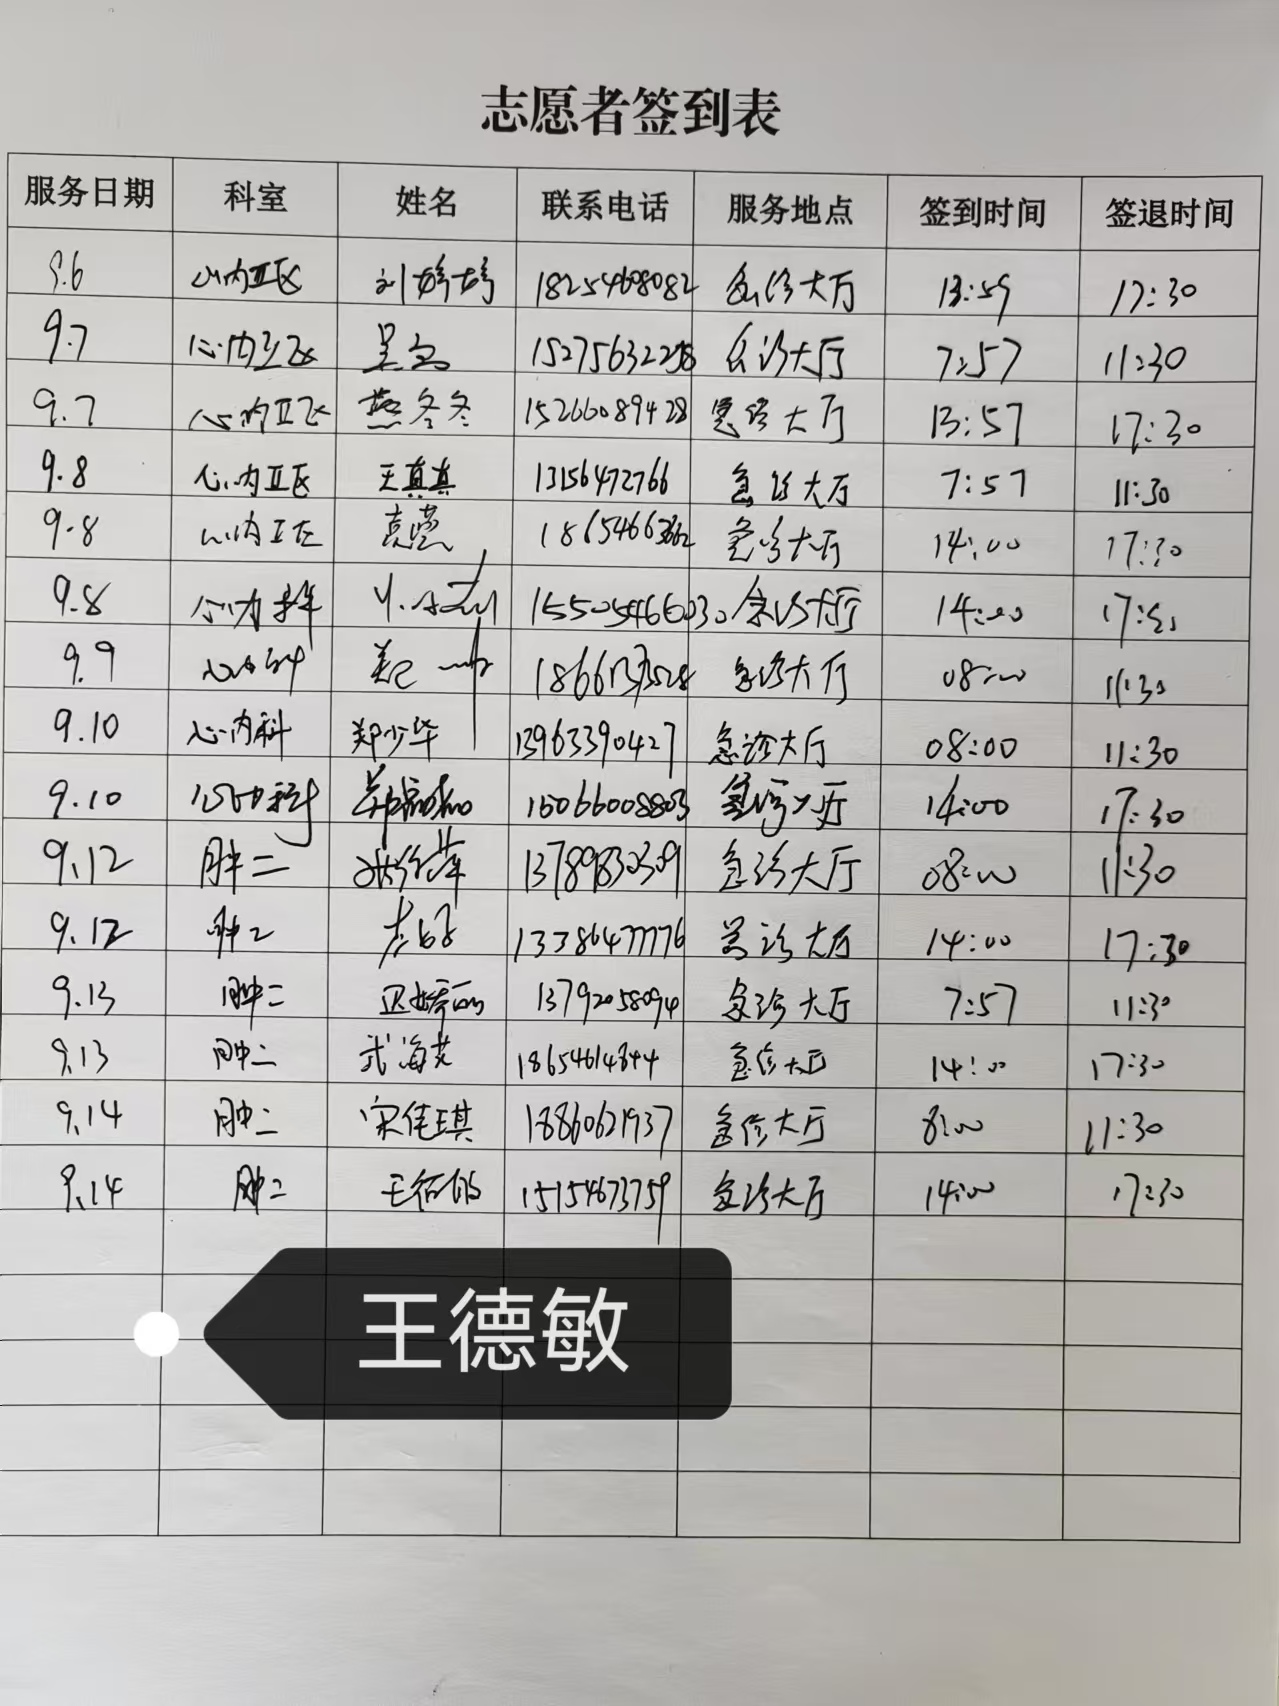 志愿者签到表
服务日期 科室 姓名 联系电话 服务地点 签到时间 签退时间
9.6 心内亚区 刘婷婷 18254608082 急诊大厅 13:59 17:30
9.7 心内亚区 急诊大厅 7:57 11:30
9.7 心内亚区 燕冬冬 15266089428 急诊大厅 13:57 17:30
9.8 心内亚区 王真真 13156472766 急诊大厅 7:57 11:30
9.8 心内亚区 袁莹 急诊大厅 14:00 17:30
9.8 15505466030 急诊大厅 14:00
9.9 心内科 急诊大厅 08:00 11:30
9.10 心内科 郑少华 13963390427 急诊大厅 08:00 11:30
9.10 心内科 15066008803 急诊大厅 14:00 17:30
9.12 肿二 急诊大厅 08:00 11:30
9.12 肿二 急诊大厅 14:00 17:30
9.13 肿二 13792058094 急诊大厅 7:57 11:30
9.13 肿二 急诊大厅 14:00 17:30
9.14 肿二 宋佳琪 18860621937 急诊大厅 8:00 11:30
9.14 肿二 王德敏 15154673759 急诊大厅 14:00 17:30
王德敏